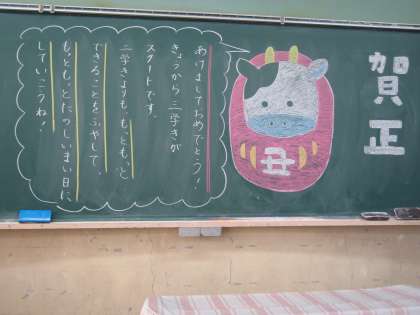 賀正
丑
あけましておめでとう!
きょうから三学きが
スタートです。
二学きよりも、もっともっと
できることをふやして、
もっともっとたのしいまい日に
していこうね!